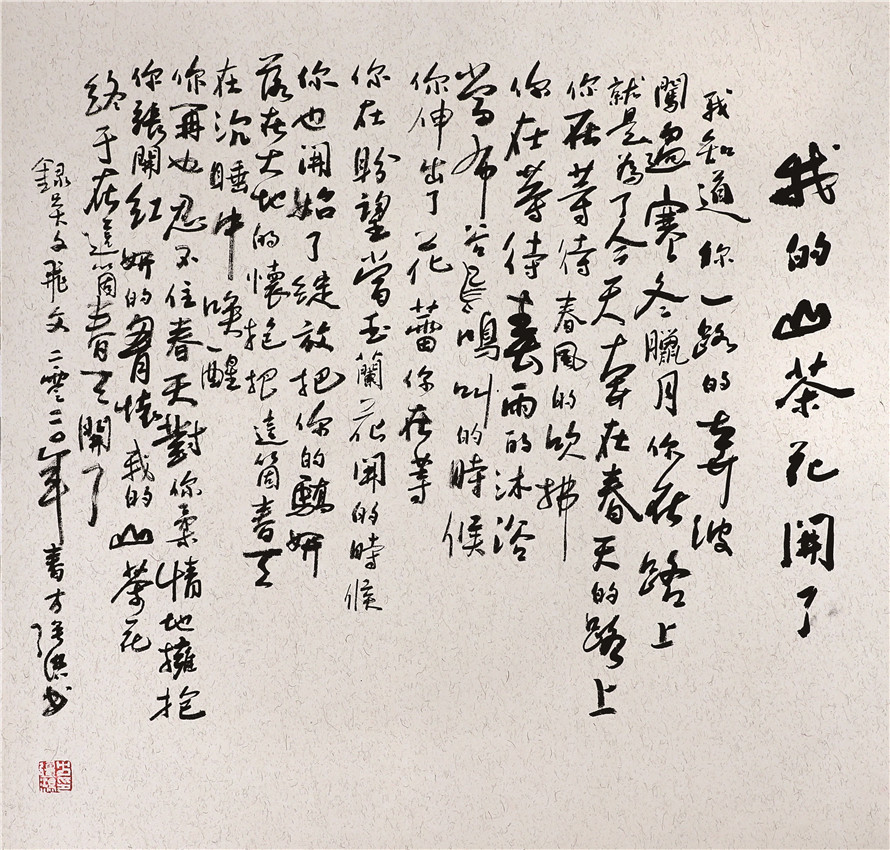 我的山茶花開了
我知道你一路的奔波
闖過寒冬臘月你在路上
就是為了今天奔在春天的路上
你在等待春風的吹拂
你在等待春雨的沐浴
當布谷鳥鳴叫的時候
你伸出了花蕾你在等
你在盼望當玉蘭花開的時候
你也開始了綻放把你的妍
落在大地的懷抱把這箇春天
在沉睡中喚醒
你再也忍不住春天對你柔情地擁抱
你張開紅妍的胷懷我的山茶花
終于在這箇春天開了
錄吳文飛文二零二〇年春方張洪書